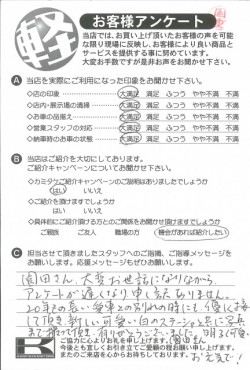 軽
お客様アンケート
当店では、お買い上げ頂いたお客様の声を可能
な限り現場に反映し、お客様により良い商品と
サービスを提供する事に努めています。
大変お手数ですが是非お声をお聞かせ下さい。
A 当店を実際にご利用になった印象をお聞かせ下さい。
◇店の印象 大満足 満足 ふつう やや不満 不満
◇店内・展示場の清掃 大満足 満足 ふつう やや不満 不満
◇お車の品揃え 大満足 満足 ふつう やや不満 不満
◇営業スタッフの対応 大満足 満足 ふつう やや不満 不満
◇納車時のお車の状態 大満足 満足 ふつう やや不満 不満
B 当店はご紹介を大切にしております。
ご紹介キャンペーンについてお聞かせ下さい。
◇カミタケご紹介キャンペーンのご説明はありましたでしょうか
はい いいえ
◇ご紹介を頂けますでしょうか
はい いいえ
◇具体的にご紹介頂ける方とのご関係をお聞かせ頂けますでしょうか
ご親族 ご友人 職場の方 機会があれば紹介したい
C 担当させて頂きましたスタッフへのご指摘、ご指導メッセージを
お願いします。応援メッセージもぜひお願いします。
園田さん、大変お世話になりながら
アンケートが遅くなり申し訳ありません。
20年の長い愛車との別れの時にも優しく接し
て頂き新しい可愛い白のステラと共に写真
まで撮って頂き有りがとうございました。
ご協力に心よりお礼を申し上げます。
今後とも宜しくお引き立てご愛顧の程お願い申し上げます。
またのご来店を心からお待ちしております。
お元気で！